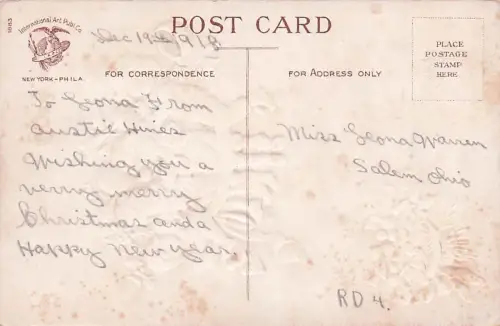 1883
International Art Publ. Co.
NEW YORK - PHILA.
POST CARD
Dec 19th 1918
FOR CORRESPONDENCE
FOR ADDRESS ONLY
PLACE
POSTAGE
STAMP
HERE
To Leona From
Austie Hines
Wishing you a
verry merry
Christmas and a
Happy New year.
Miss Leona Warren
Salem Ohio
RD 4.